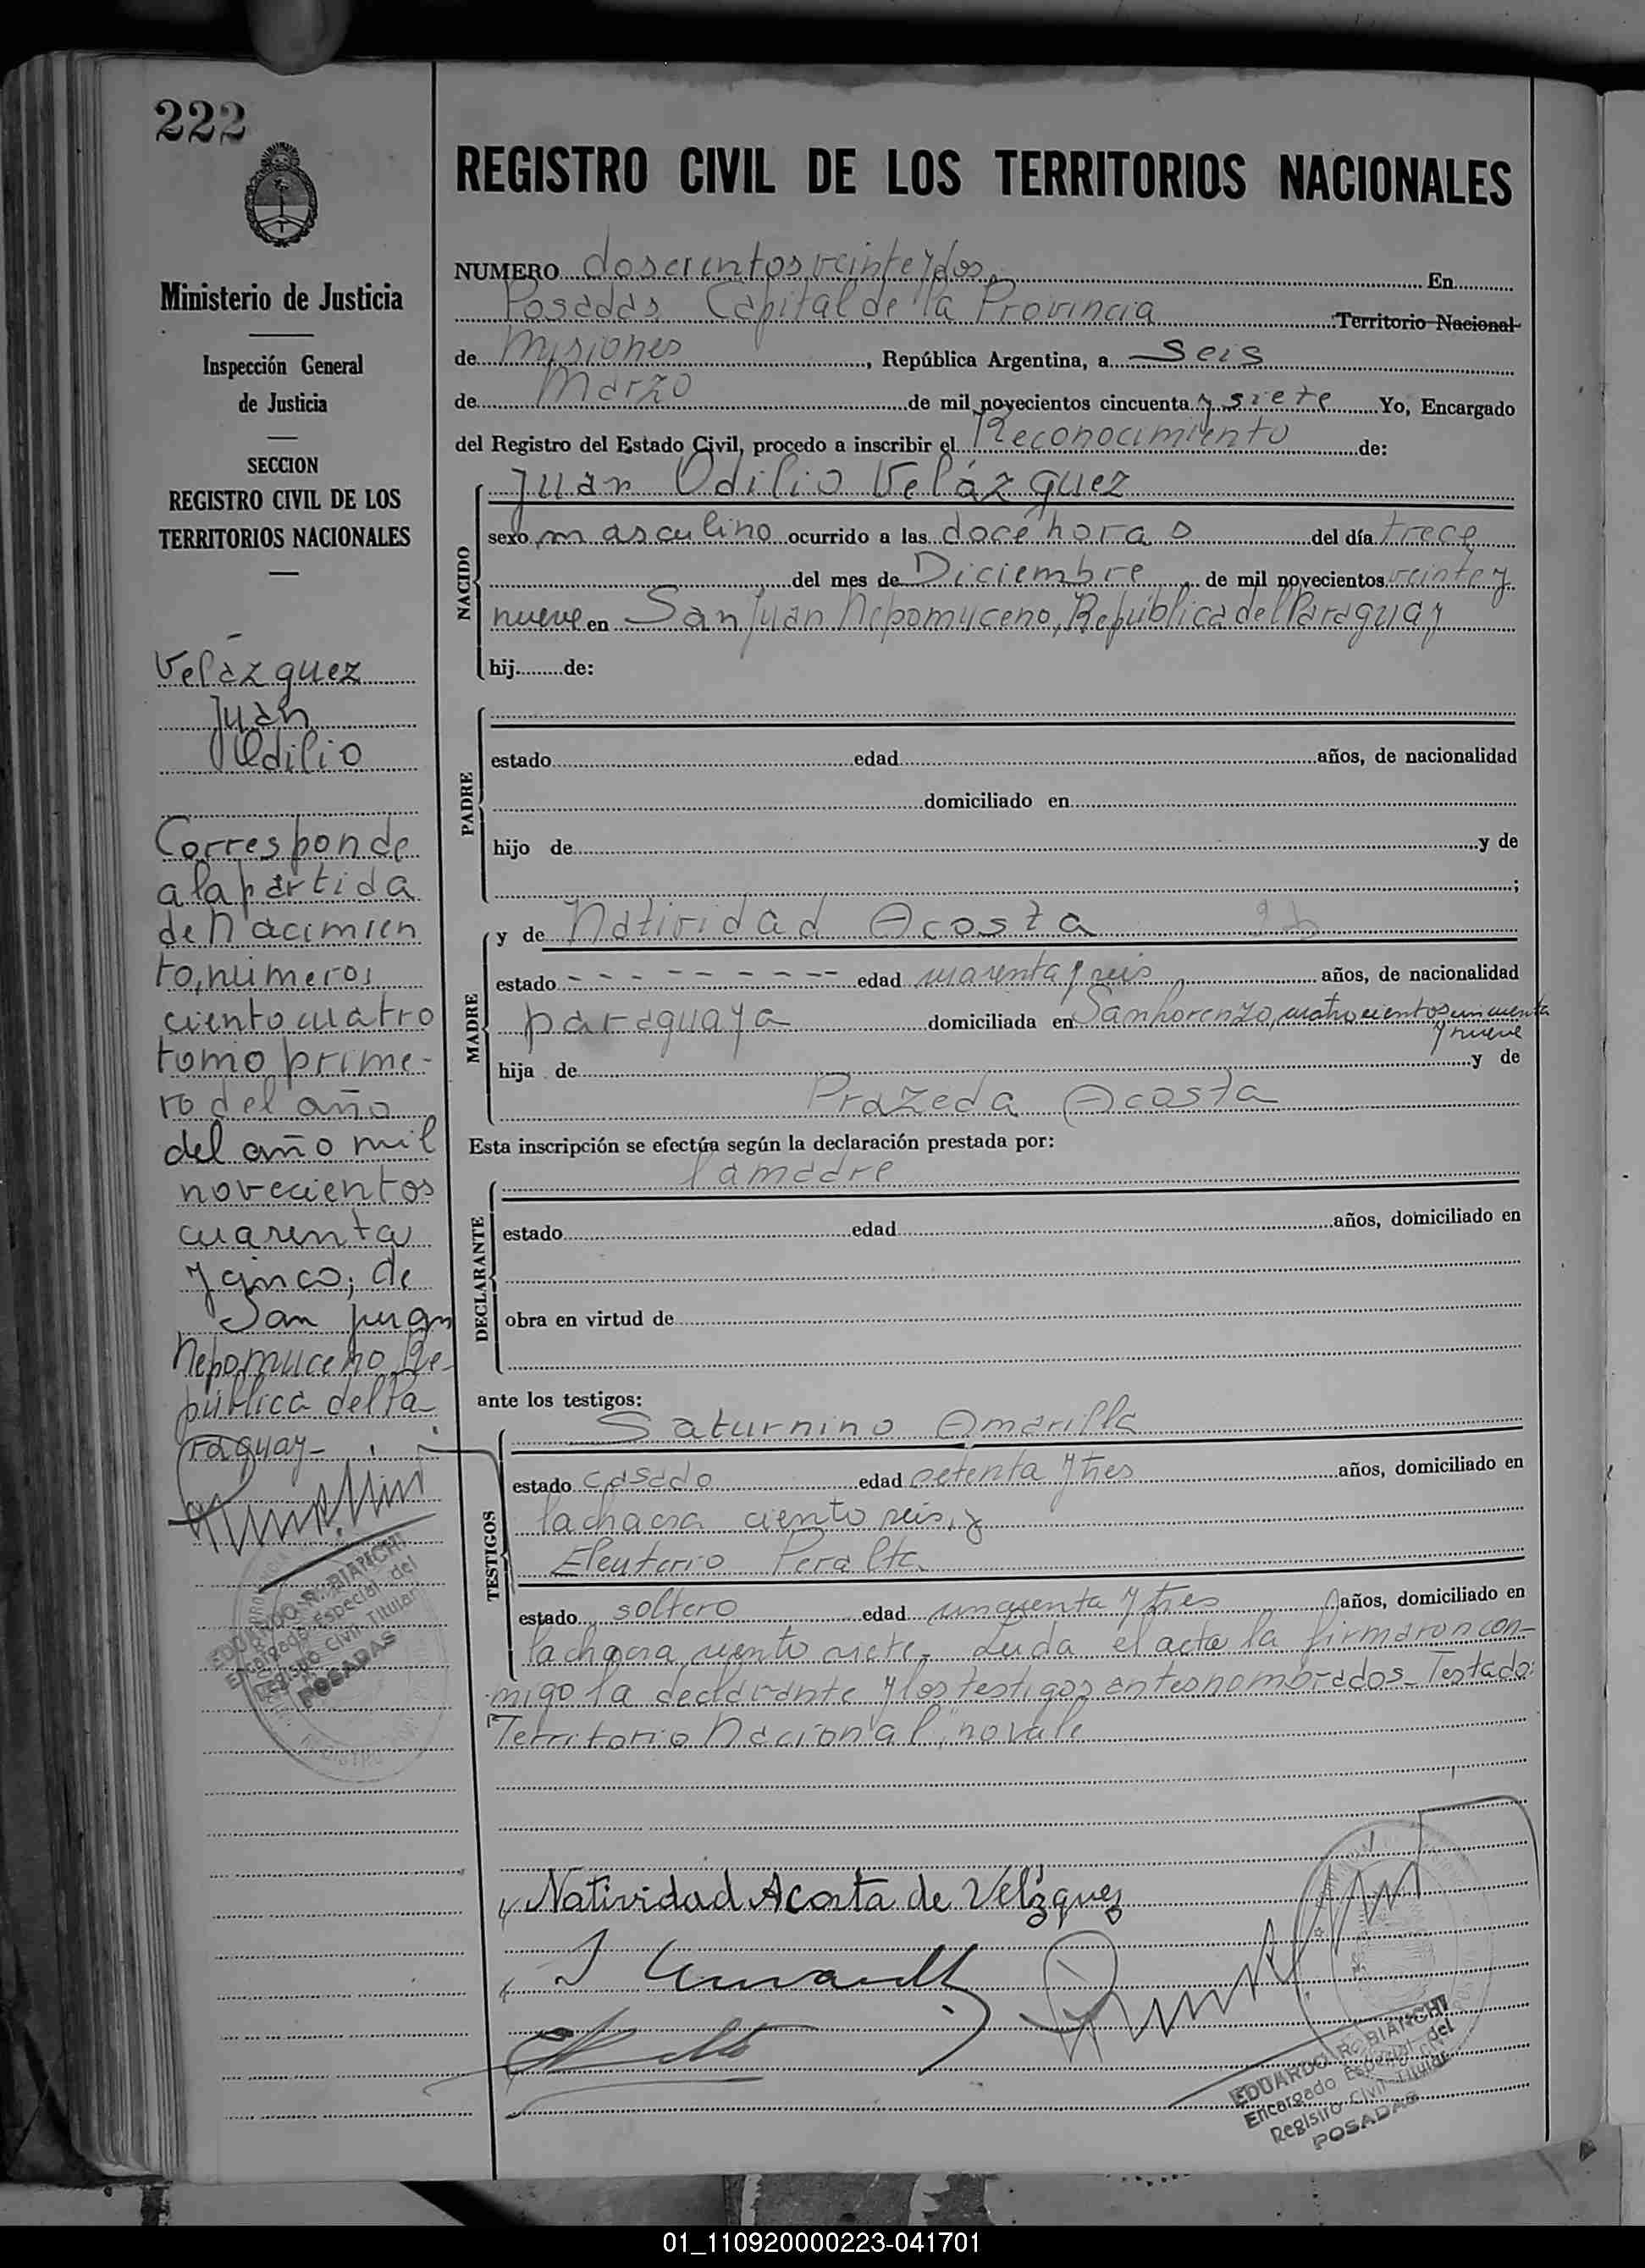 222
Ministerio de Justicia
Inspección General
de Justicia
SECCION
REGISTRO CIVIL DE LOS
TERRITORIOS NACIONALES
Velázquez
Juan
Odilio
Corresponde
a la partida
de Nacimien
to, número,
ciento cuatro
tomo prime-
ro del año
del año mil
novecientos
cuarenta
y cinco; de
San Juan
Nepomuceno Re-
pública del Pa-
raguay-
EDUARDO R. BIANCHI
Encargado Especial del
Registro Civil Titular
POSADAS
REGISTRO CIVIL DE LOS TERRITORIOS NACIONALES
NUMERO doscientos veinte y dos, En
Posadas Capital de la Provincia Territorio Nacional
de Misiones, República Argentina, a seis
de Marzo de mil novecientos cincuenta y siete Yo, Encargado
del Registro del Estado Civil, procedo a inscribir el Reconocimiento de:
Juan Odilio Velázquez
NACIDO
sexo masculino ocurrido a las doce horas del día trece
del mes de Diciembre de mil novecientos veinte y
nueve en San Juan Nepomuceno, República del Paraguay
hij de:
PADRE
estado edad años, de nacionalidad
domiciliado en
hijo de y de
;
MADRE
y de Natividad Acosta
estado - - - - - - - - - edad cuarenta y seis años, de nacionalidad
paraguaya domiciliada en San Lorenzo, cuatrocientos cincuenta
y nueve
hija de y de
Prazeda Acosta
Esta inscripción se efectúa según la declaración prestada por:
la madre
DECLARANTE
estado edad años, domiciliado en
obra en virtud de
ante los testigos:
TESTIGOS
Saturnino Amarilla
estado casado edad setenta y tres años, domiciliado en
la chacra ciento seis, y
Eleuterio Peralta
estado soltero edad cincuenta y tres años, domiciliado en
la chacra ciento siete. Leida el acta la firmaron con-
migo la declarante y los testigos antes nombrados_ Testado:
"Territorio Nacional", no vale
Natividad Acosta de Velázquez
EDUARDO R. BIANCHI
Encargado Especial del
Registro Civil Titular
POSADAS
01_110920000223-041701